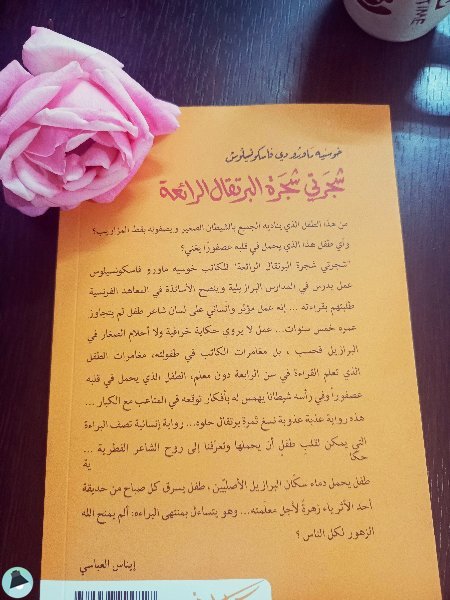 TIME
خوسيه ماورو دي فاسكونسيلوس
شجرتي شجرة البرتقال الرائعة
من هذا الطفل الذي يناديه الجميع بالشيطان الصغير ويصفونه بقط المزاريب؟
وأي طفل هذا الذي يحمل في قلبه عصفورًا يغني؟
"شجرتي شجرة البرتقال الرائعة" للكاتب خوسيه ماورو فاسكونسيلوس
عمل يدرس في المدارس البرازيلية وينصح الأساتذة في المعاهد الفرنسية
طلبتهم بقراءته ... إنه عمل مؤثر وانساني على لسان شاعر طفل لم يتجاوز
عمره خمس سنوات... عمل لا يروي حكاية خرافية ولا أحلام الصغار في
البرازيل فحسب ، بل مغامرات الكاتب في طفولته، مغامرات الطفل
الذي تعلم القراءة في سن الرابعة دون معلم، الطفل الذي يحمل في قلبه
عصفوراً وفي رأسه شيطانًا يهمس له بأفكار توقعه في المتاعب مع الكبار ...
هذه رواية عذبة عذوبة نسغ ثمرة برتقال حلوه... رواية إنسانية تصف البراءة
التي يمكن لقلب طفل أن يحملها وتعرفنا إلى روح الشاعر الفطرية ...
حكا
ية
طفل يحمل دماء سكّان البرازيل الأصليّين ، طفل يسرق كل صباح من حديقة
أحد الأثرياء زهرةً لأجل معلمته... وهو يتساءل بمنتهى البراءة: ألم يمنح الله
الزهور لكل الناس ؟
إيناس العباسي